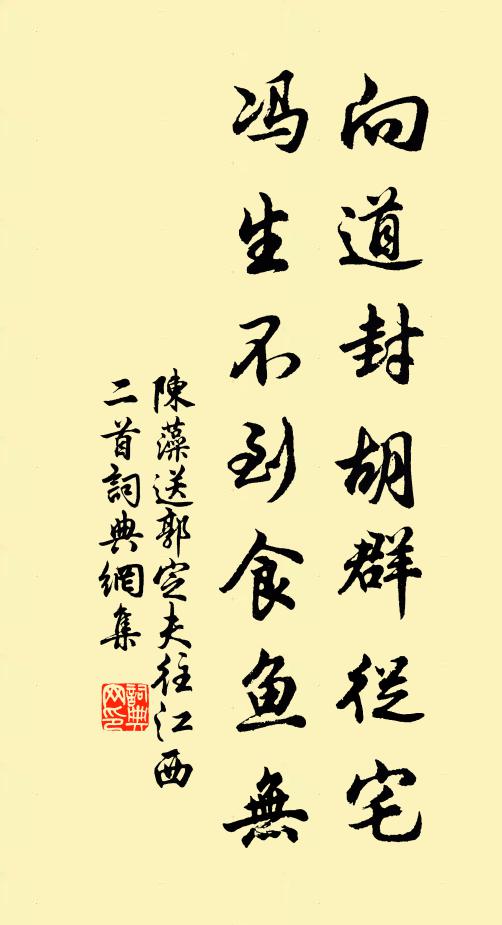 向道封胡群從宅
冯生不到食魚無
陳藻送郭定夫往江西
二首詞典網集
詞典
网印